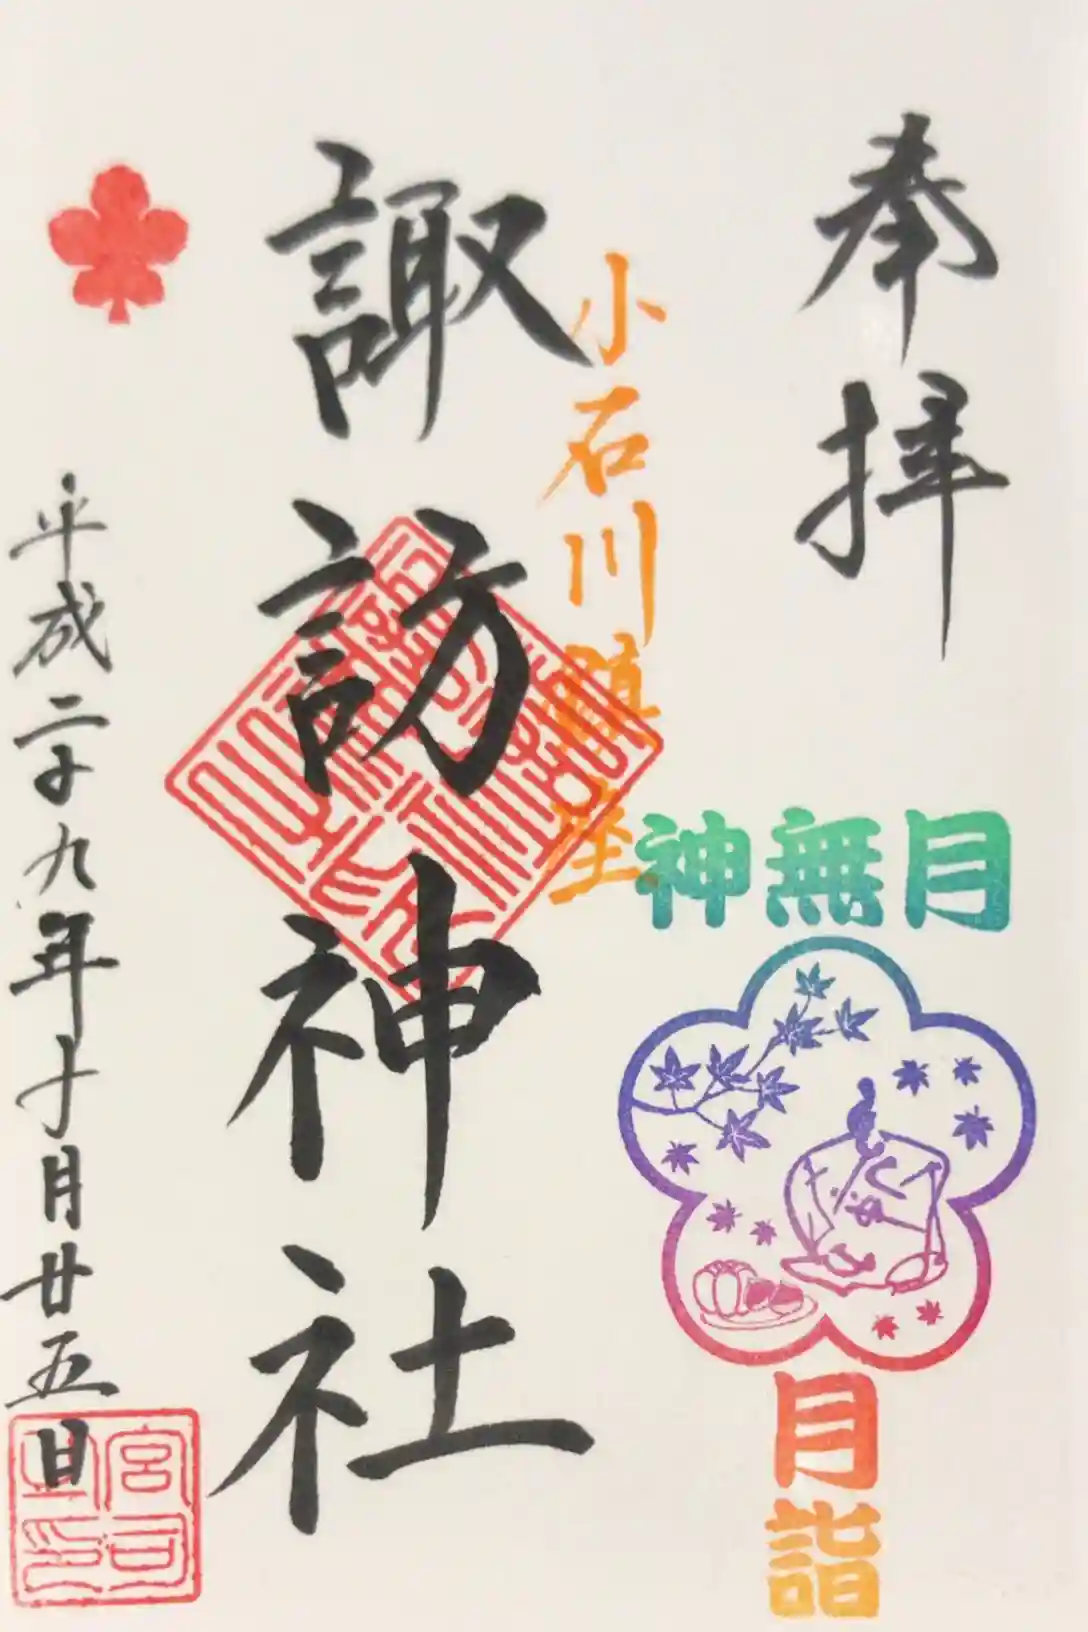 奉拝
神無月
月詣
小石川鎮座
諏訪神社
平成二十九年十月廿五日
宮司之印